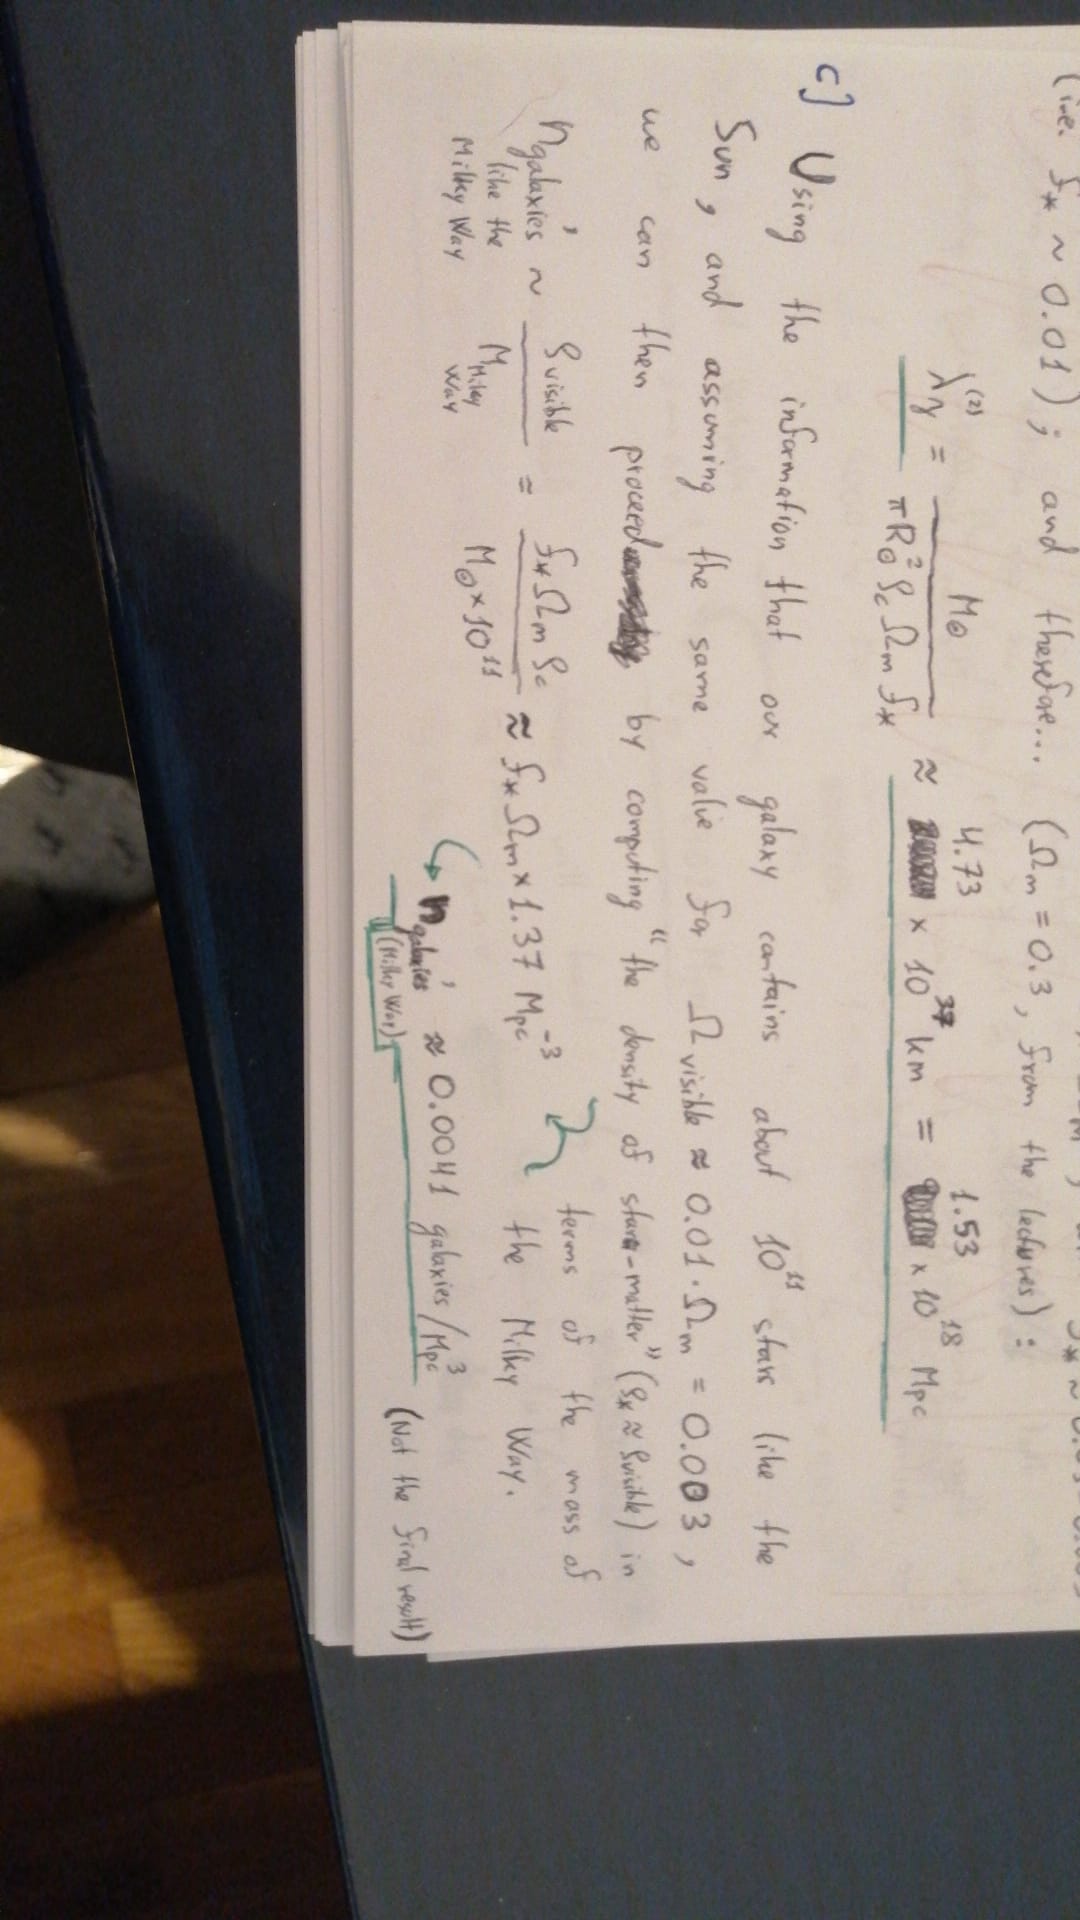 (i.e. f* ~ 0.01); and therefore... (Ωm = 0.3, from the lectures):
λγ^(2) = M⊙ / (πR⊙² ρc Ωm f*) ≈ 4.73 × 10^37 km = 1.53 × 10^18 Mpc
c] Using the information that our galaxy contains about 10^11 stars like the
Sun, and assuming the same value for Ωvisible ≈ 0.01·Ωm = 0.003,
we can then proceed by computing "the density of stara-matter" (ρ* ≈ ρvisible) in
terms of the mass of
the Milky Way.
ngalaxies' like the Milky Way ~ ρvisible / MMilky Way = f* Ωm ρc / (M⊙ × 10^11) ≈ f* Ωm × 1.37 Mpc^-3
ngalaxies' (Milky Way) ≈ 0.0041 galaxies/Mpc^3 (Not the final result)